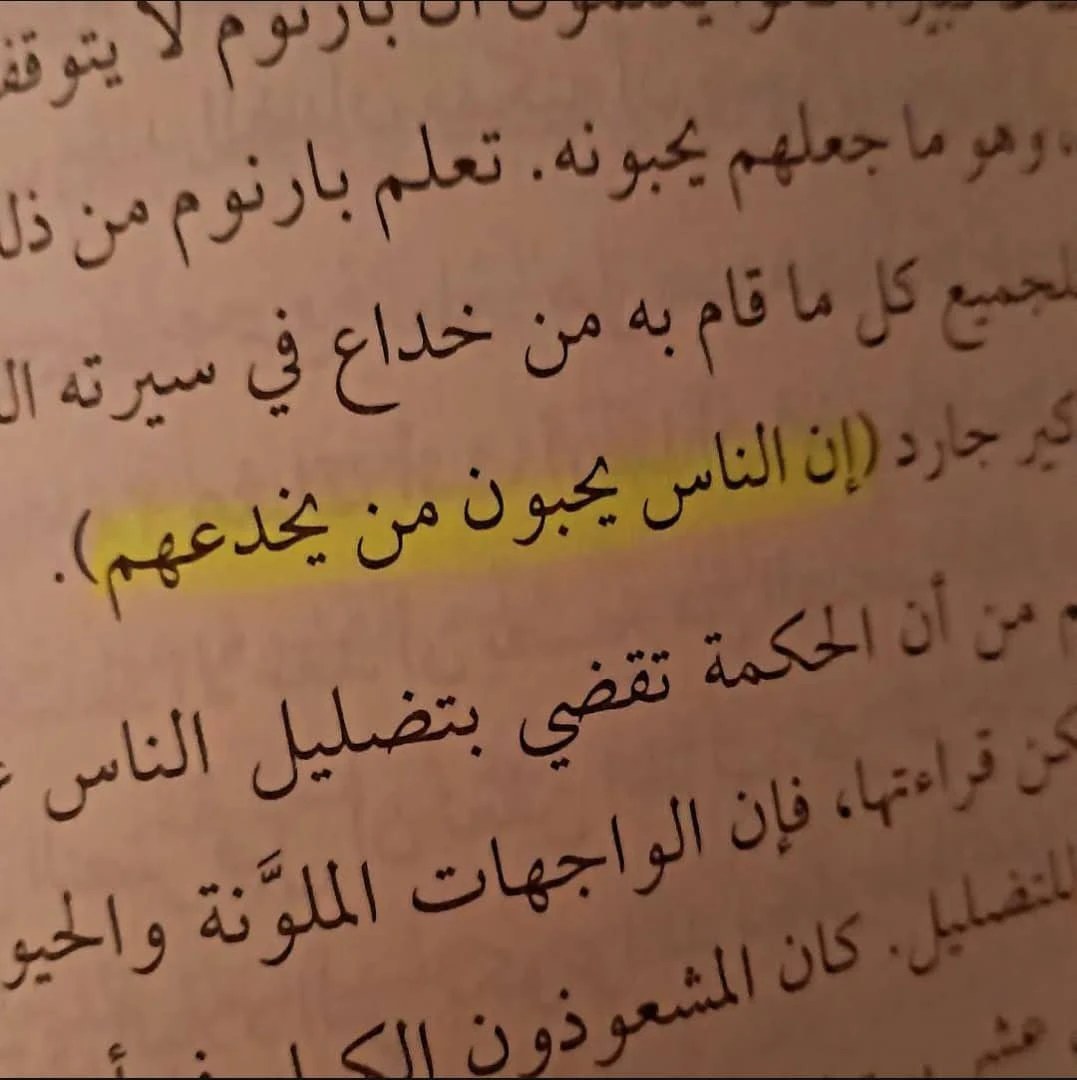 أن بارنوم لا
، وهو ما جعلهم يحبونه. تعلم بارنوم من
كل ما قام به من خداع في سيرته
جارد (إن الناس يحبون من يخدعهم).
من أن الحكمة تقضي بتضليل الناس
قراءتها، فإن الواجهات الملوَّنة
للتضليل. كان المشعوذون
عشر